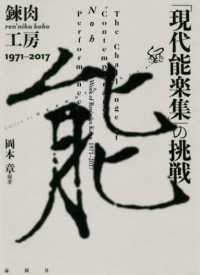 「現代能楽集」の挑戦
錬肉工房
ren'niku kobo
1971–2017
The Challenge of
"Contemporary
Noh
Performance"
Works of Ren'niku Kobo 1971-2017
能
岡本 章 編著
論創社